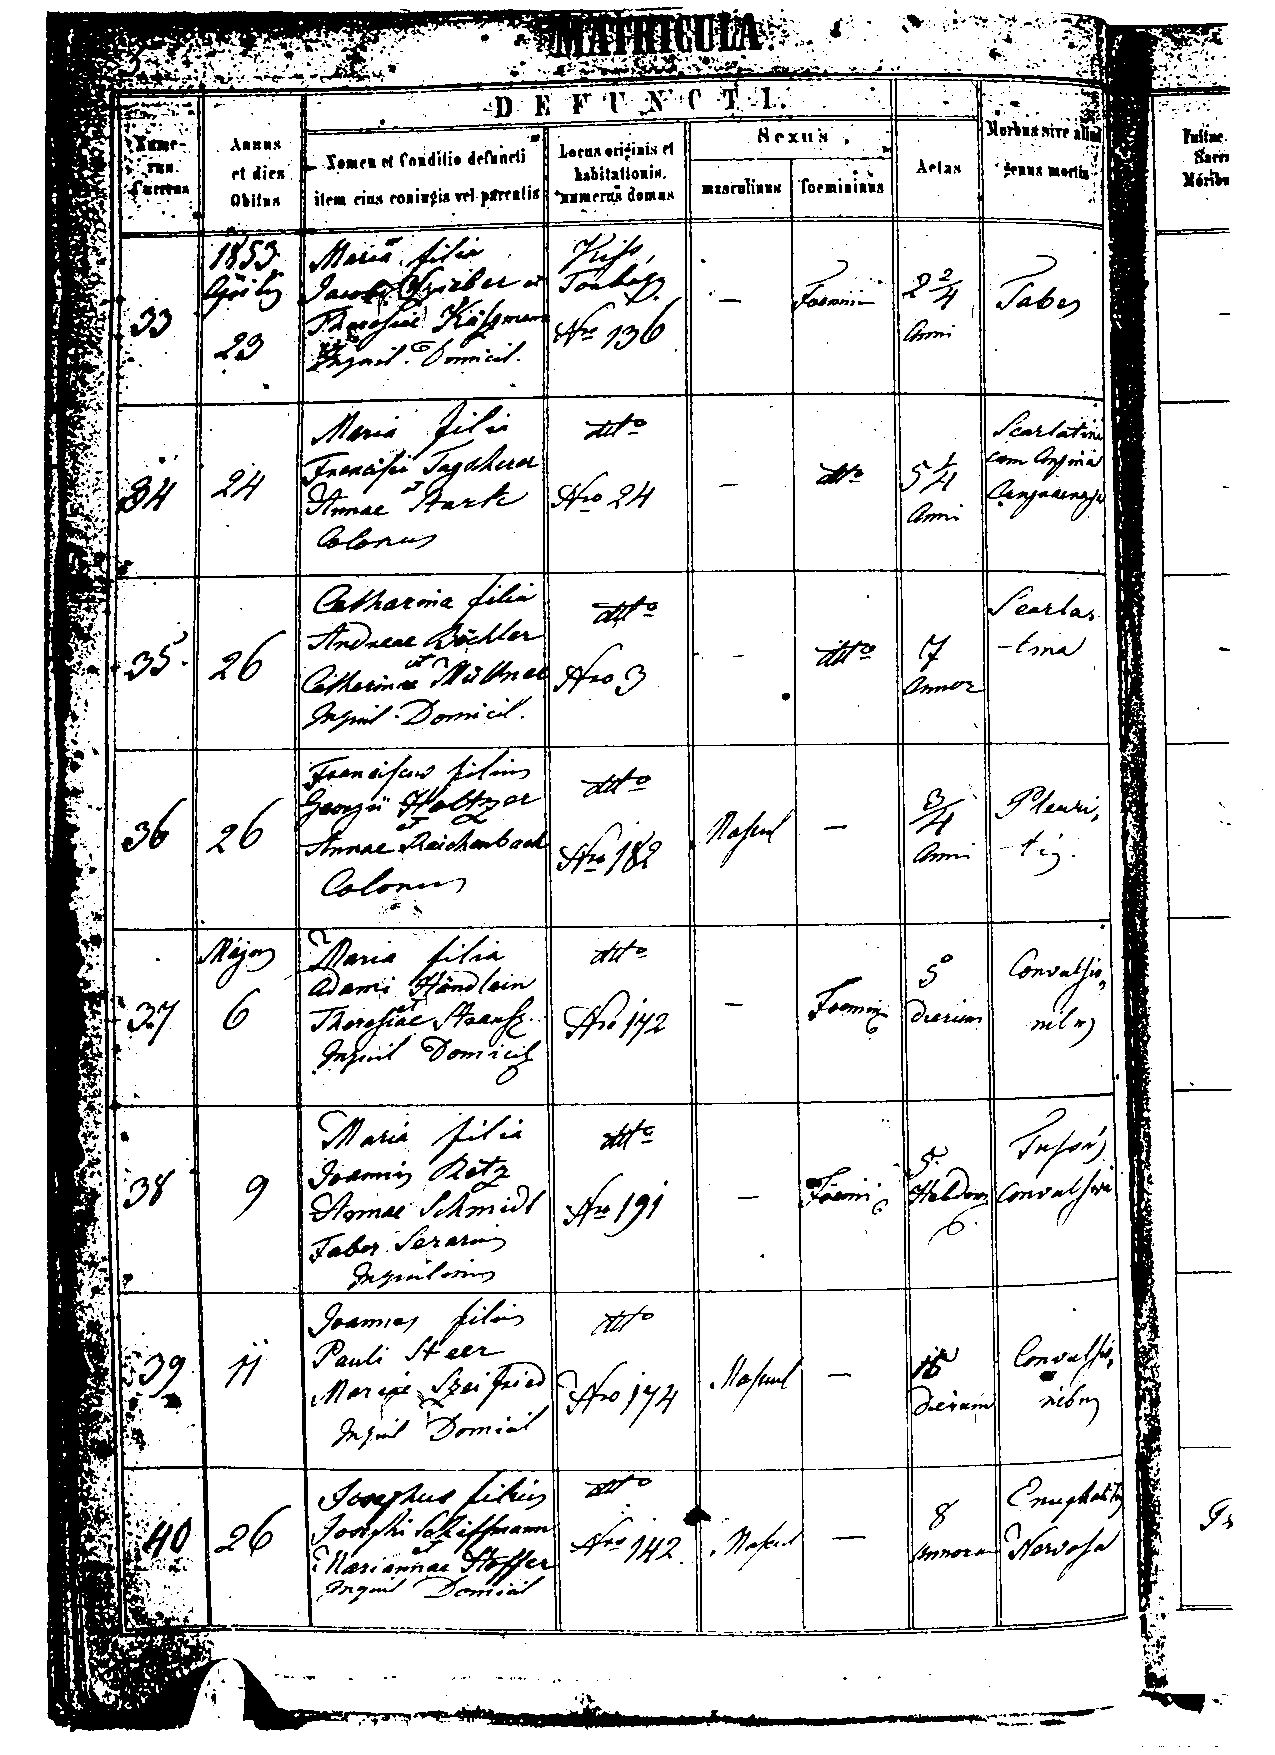 MATRICULA
DEFUNCTI.
Nume-
rus
Currens
Annus
et dies
Obitus
Nomen et Conditio defuncti
item eius coniugis vel parentis
Locus originis et
habitationis,
numerus domus
Sexus
masculinus
foemininus
Aetas
Morbus sive aliud
genus mortis
33
1853
23
Maria filia
Jacobi
Theresiae
Inquil. Domicil.
Nro 136
—
Foemin
2 2/4
Anni
Tabes
34
24
Maria filia
Francisci
Annae et Stark
Colonus
ditto
Nro 24
—
ditto
5 1/4
Anni
Scarlatina
cum Angina
35.
26
Catharina filia
Andreae Böchler
Catharinae et Müllner
Inquil. Domicil.
ditto
Nro 3
—
ditto
7
Annor
Scarla-
tina
36
26
Franciscus filius
Georgii Holtzer
Annae et Reichenbach
Colonus
ditto
Nro 182
Mascul
—
3/4
Anni
Pleuri-
tis.
37
Majus
6
Maria filia
Adami Händlein
Theresiae et
Inquil Domicil
ditto
Nro 172
—
Foemin
5
Dierum
Convulsio-
nibus
38
9
Maria filia
Joannis Retz
Annae Schmidt
Faber Serarius
Inquilinus
ditto
Nro 191
—
Foemin
5.
Hebdom
Tussis
Convulsiva
39
11
Joannes filius
Pauli Steer
Mariae Szeifried
Inquil Domicil
ditto
Nro 174
Mascul
—
15
Dierum
Convulsio-
nibus
40
26
Josephus filius
Josephi Schiffmann
Mariannae et Stoffer
Inquil Domicil
ditto
Nro 142.
Mascul
—
8
Annorum
Nervosa